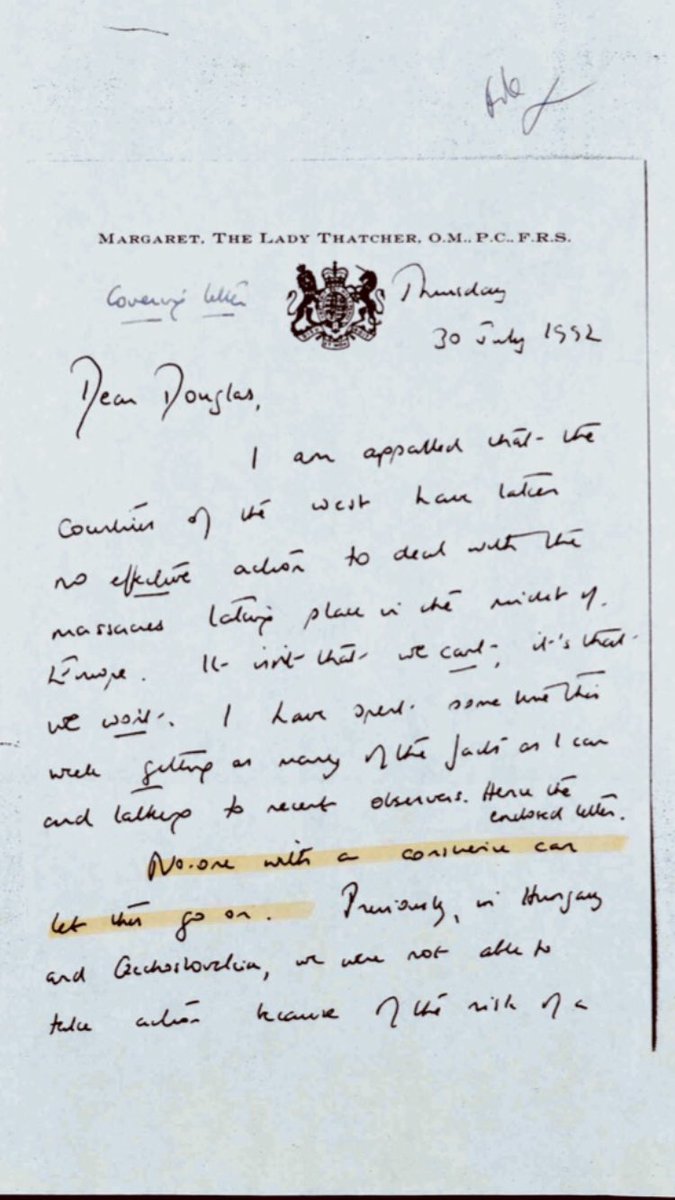 MARGARET, THE LADY THATCHER, O.M., P.C., F.R.S.
Covering letter
Thursday
30 July 1992
Dear Douglas,
I am appalled that the
countries of the west have taken
no effective action to deal with the
massacres taking place in the midst of
Europe. It isn't that we can't, it's that
we won't. I have spent some time this
week getting as many of the facts as I can
and talking to recent observers. Hence the
enclosed letter.
No-one with a conscience can
let this go on. Previously, in Hungary
and Czechoslovakia, we were not able to
take action because of the risk of a